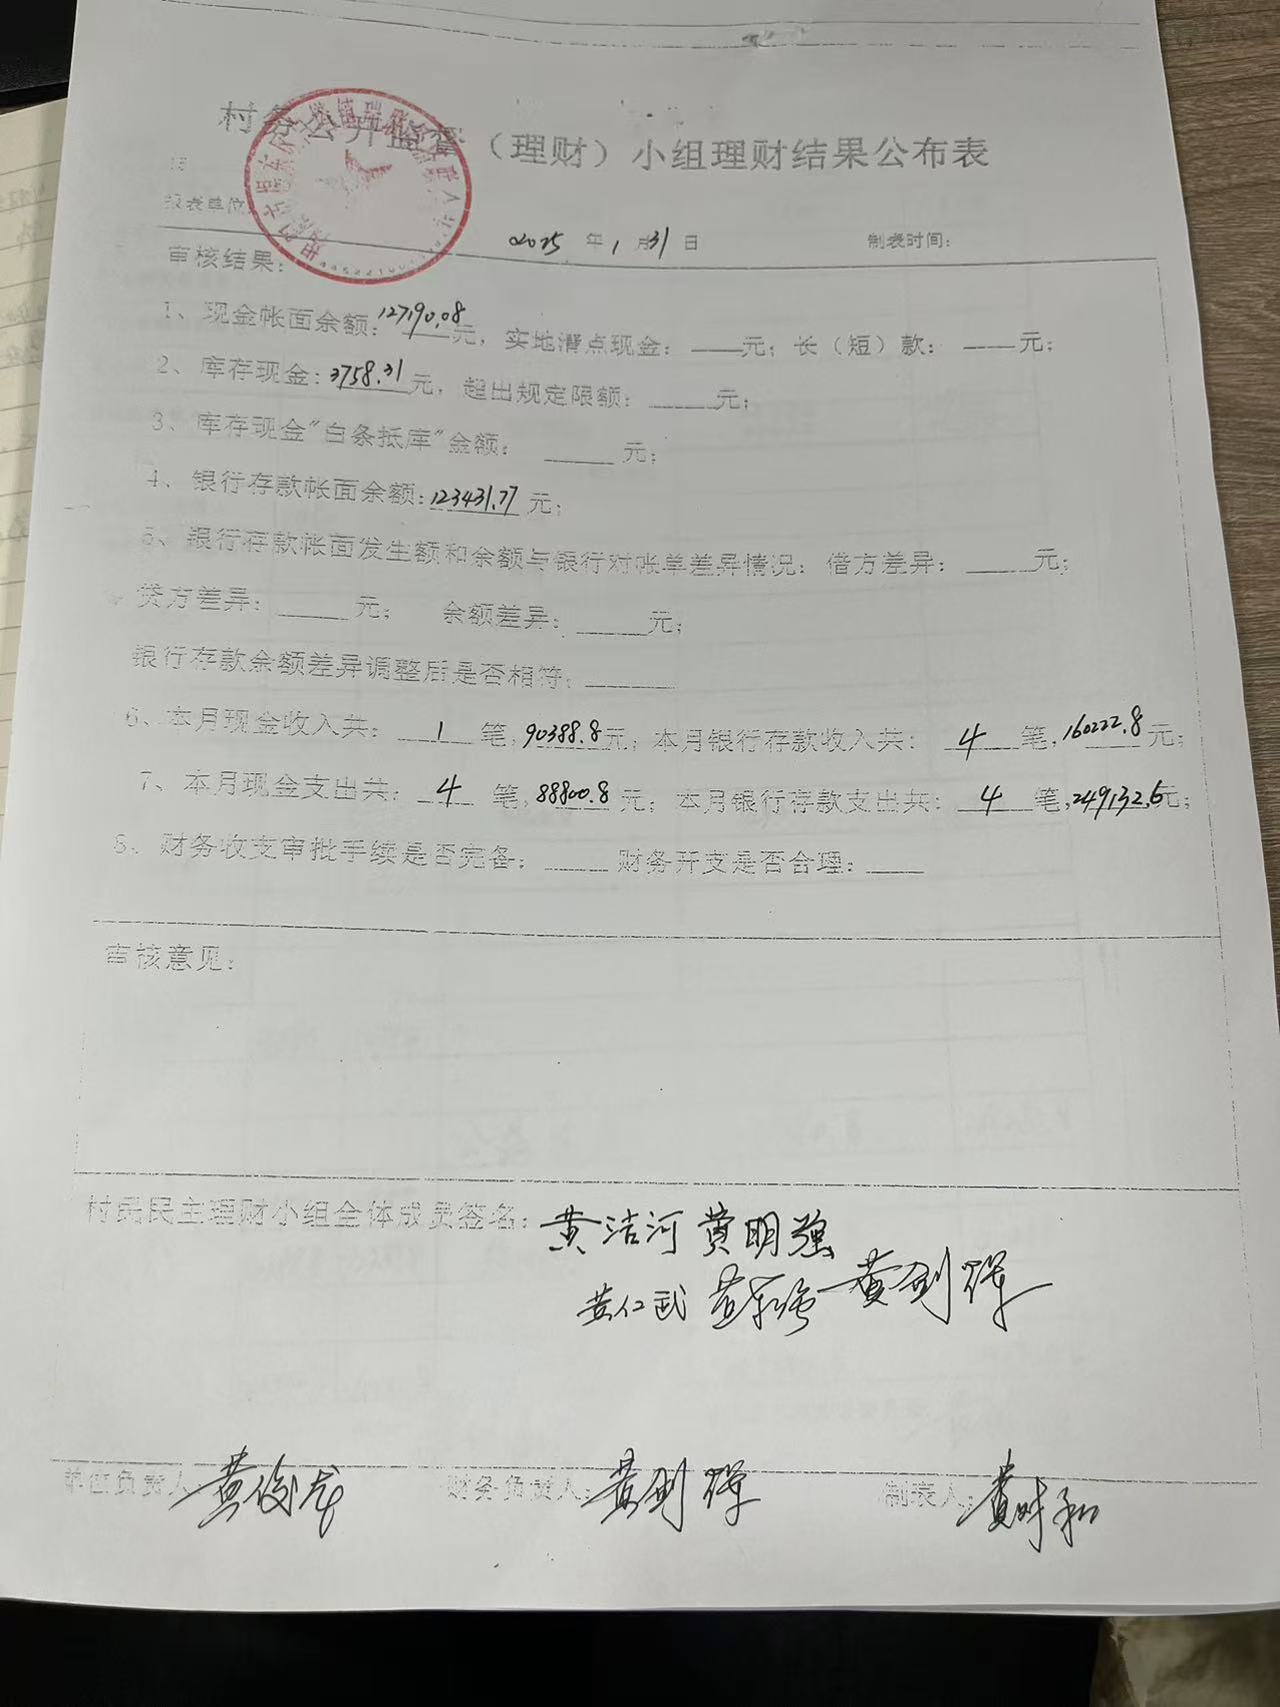 村务公开监督（理财）小组理财结果公布表
报表单位: 2025 年 1 月 31 日 制表时间：
审核结果：
1、现金帐面余额：127190.08元，实地清点现金：——元；长（短）款：——元；
2、库存现金:3758.31元，超出规定限额：____元；
3、库存现金"白条抵库"金额：____元；
4、银行存款帐面余额:123431.77元；
5、银行存款帐面发生额和余额与银行对帐单差异情况：借方差异：____元；
贷方差异：____元； 余额差异：____元；
银行存款余额差异调整后是否相符：____
6、本月现金收入共：1笔,90388.8元；本月银行存款收入共：4笔,160222.8元；
7、本月现金支出共：4笔,88800.8元；本月银行存款支出共：4笔,249132.6元；
8、财务收支审批手续是否完备：____财务开支是否合理：____
审核意见：
村民民主理财小组全体成员签名：黄洁河 黄明强
黄仁武 黄剑辉
单位负责人 黄俊龙 财务负责人：黄剑辉 制表人：黄